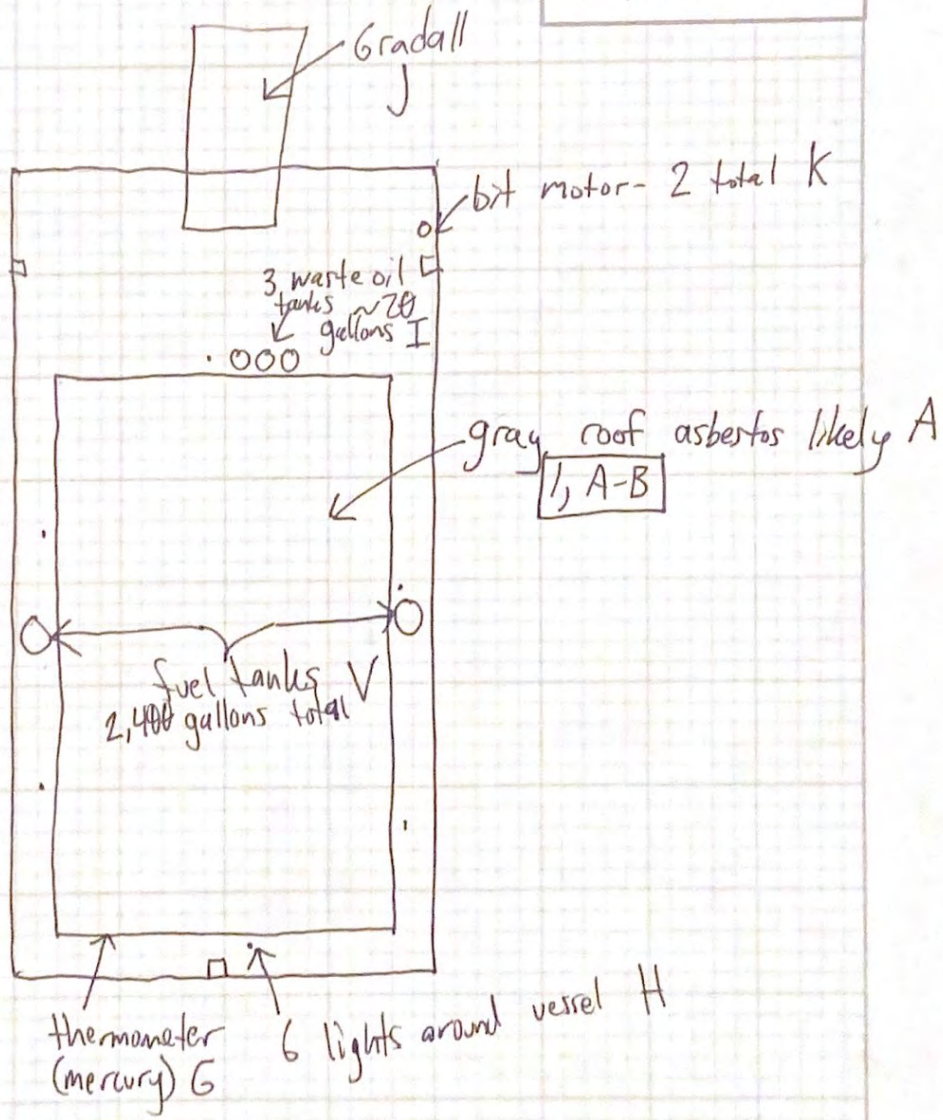 Gradall
J
bit motor- 2 total K
3 waste oil
tanks ~20
gallons I
gray roof asbestos likely A
1, A-B
fuel tanks V
2,400 gallons total
thermometer
(mercury) G
6 lights around vessel H